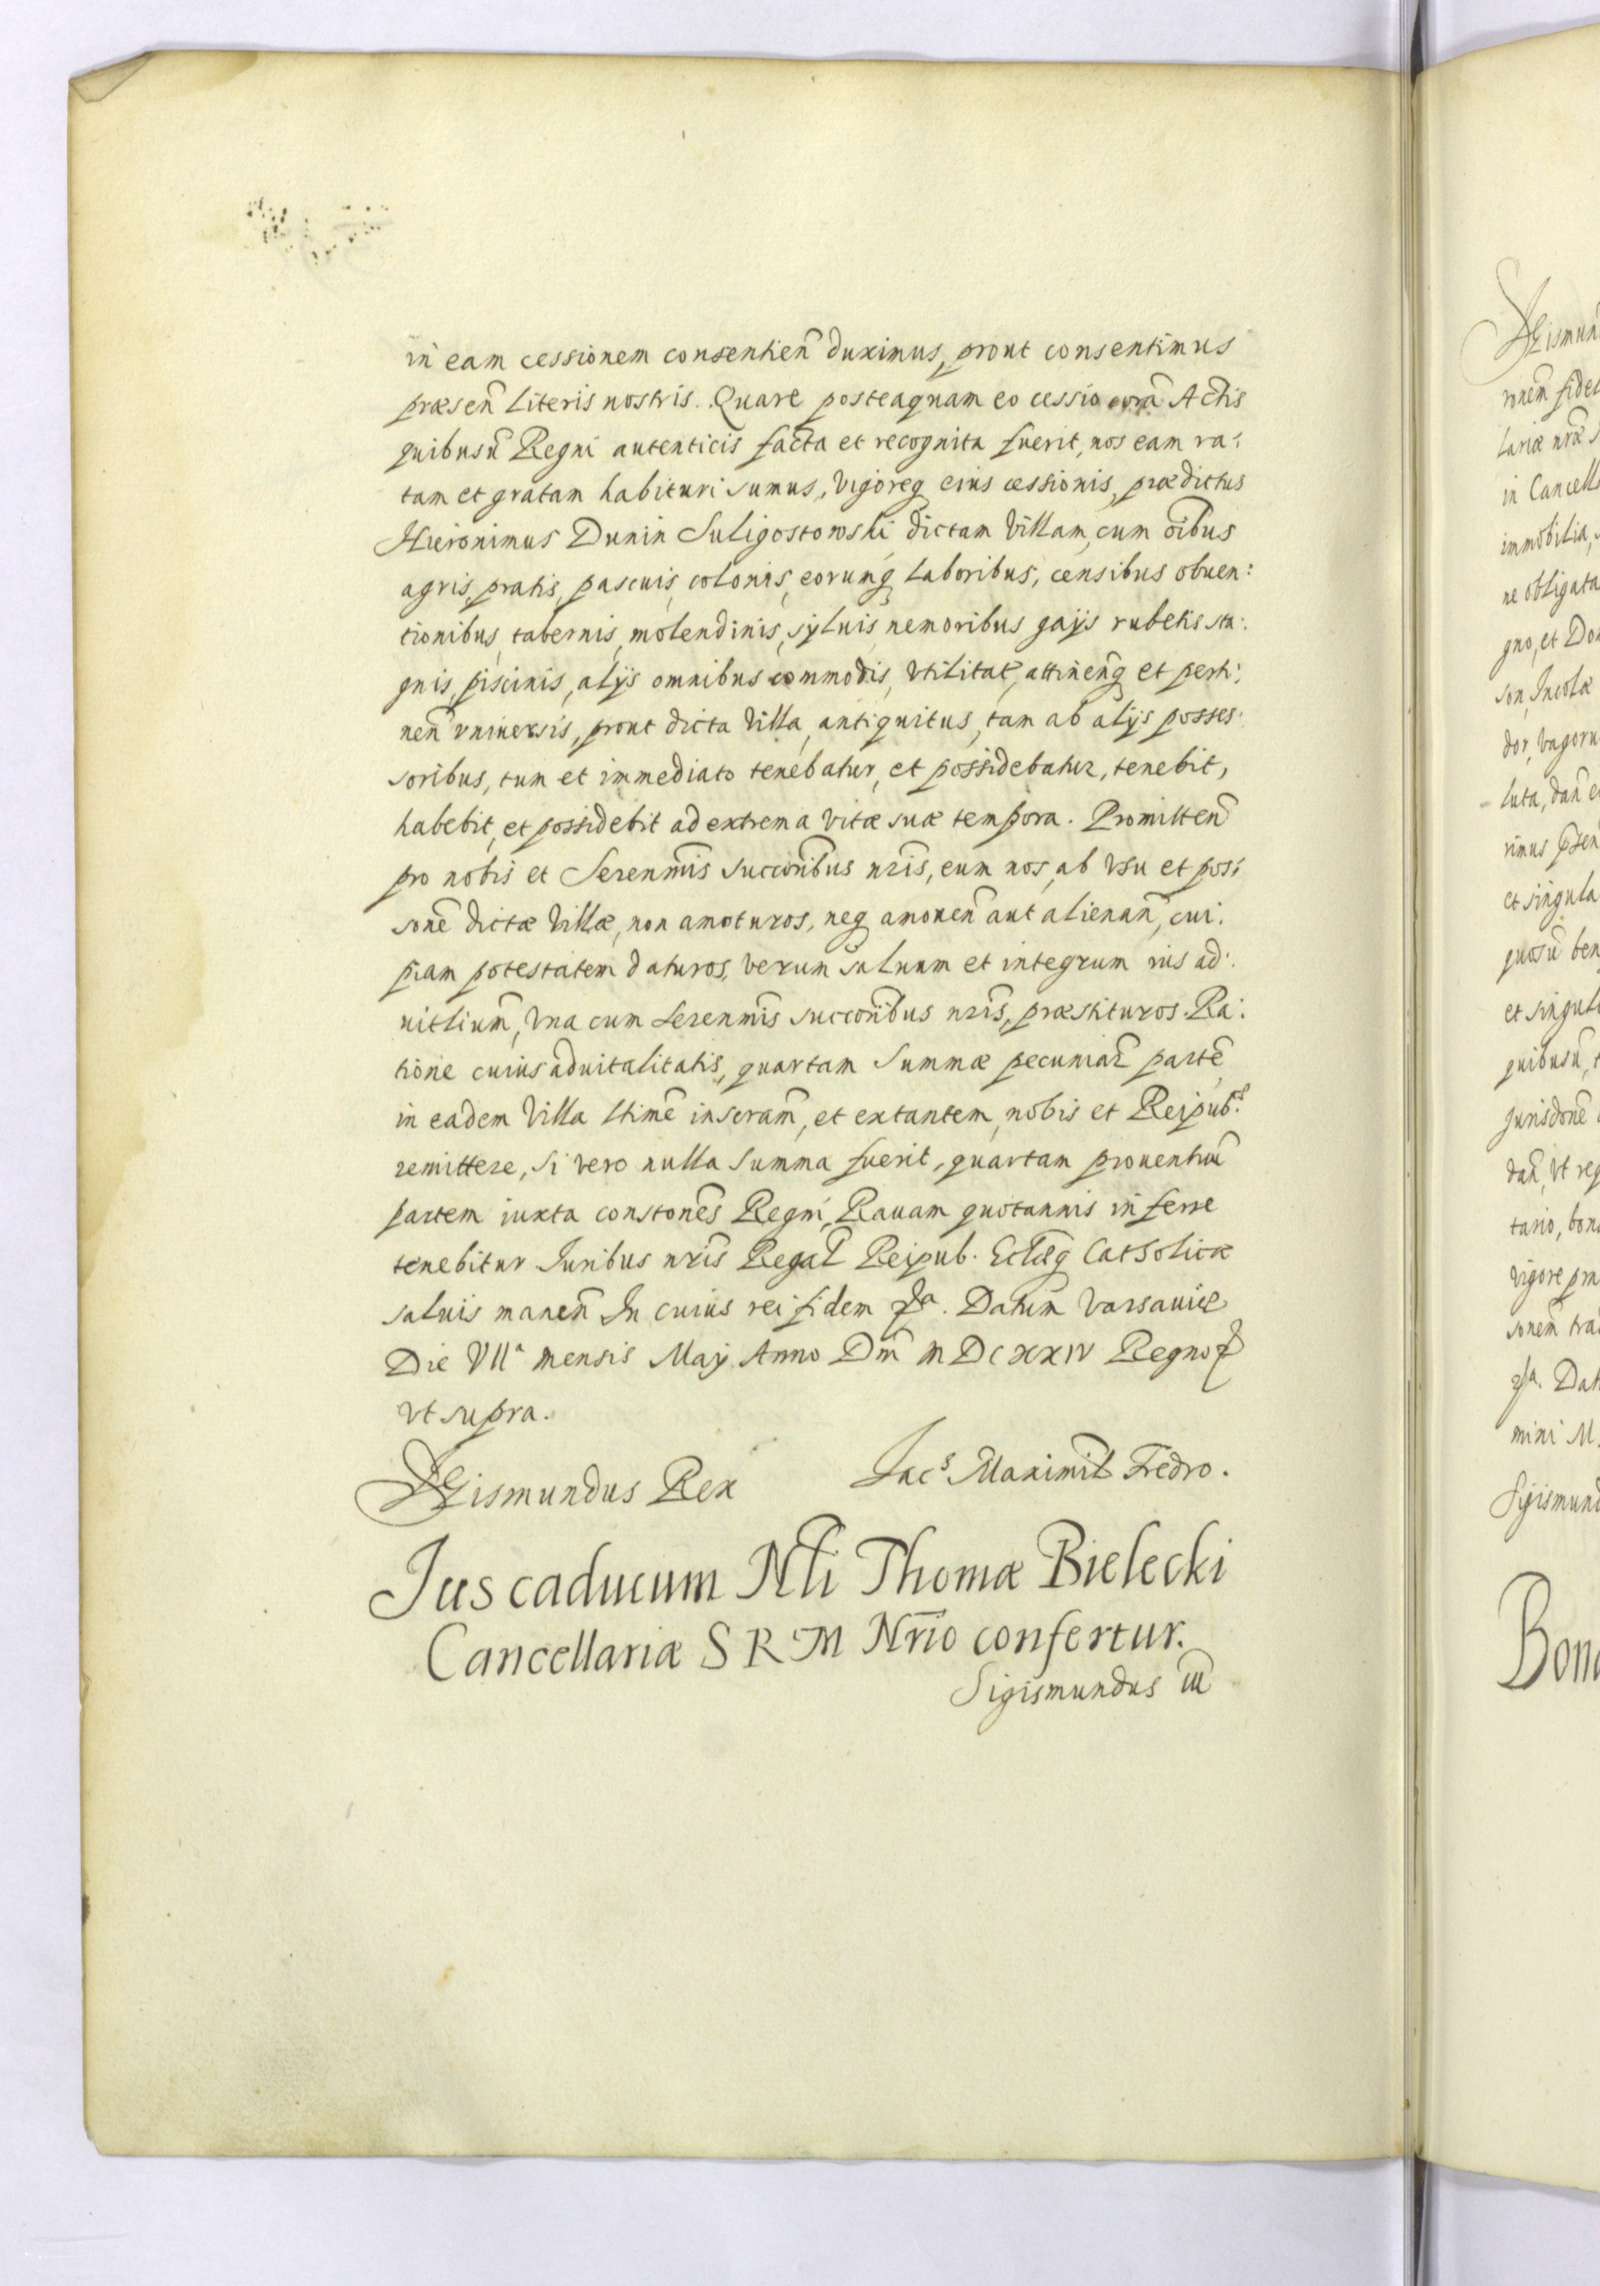 in eam cessionem consentien̄ duximus, prout consentimus
præsen̄ literis nostris. Quare posteaquam eo cessio corā Actis
quibusū Regni autenticis facta et recognita fuerit, nos eam ra:
tam et gratam habituri sumus, vigoreq eius cessionis prædictus
Hieronimus Dunin Suligostowski dictam villam, cum oībus
agris, pratis, pascuis, colonis, eorumq laboribus, censibus obuen:
tionibus, tabernis, molendinis, syluis, nemoribus gays rubetis sta:
gnis, piscinis, alys omnibus commodis, vtilitat, attinenq et perti:
nen̄ vniuersis, prout dicta villa, antiquitus, tam ab alys posses:
soribus, tum et immediato tenebatur, et possidebatur, tenebit,
habebit, et possidebit ad extrema vitæ suæ tempora. Promitten̄
pro nobis et Serenm̄is succorībus nr̄is, eum nos, ab vsu et pos:
sonē dictæ Villæ, non amoturos, neq amouen̄ aut alienan̄, cui:
piam potestatem daturos, verum saluum et integrum ius ad:
uitlium̄, vna cum serenm̄is succorībus nr̄is, præstituros. Ra:
tione cuius aduitalitatis, quartam summæ pecuniar̄ partē
in eadem villa ltimē inscram̄, et extantem, nobis et Reipub.
remittere, si vero nulla summa fuerit, quartam prouentuū
partem iuxta constonēs Regni, Rauam quotannis inferre
tenebitur Iuribus nr̄is Regal Reipub. Ecl̄æq Catholicæ
saluis manen̄ In cuius rei fidem ꝛa. Datum Varsauiæ
Die VIIª mensis May Anno Dm̄ MDCXXIV Regnoꝝ
vt supra.
Sigismundus Rex Jacˢ Maximil Fredro.
Ius caducum Nl̄i Thomæ Bielecki
Cancellariæ S R M Nr̄io confertur.
Sigismundus iii